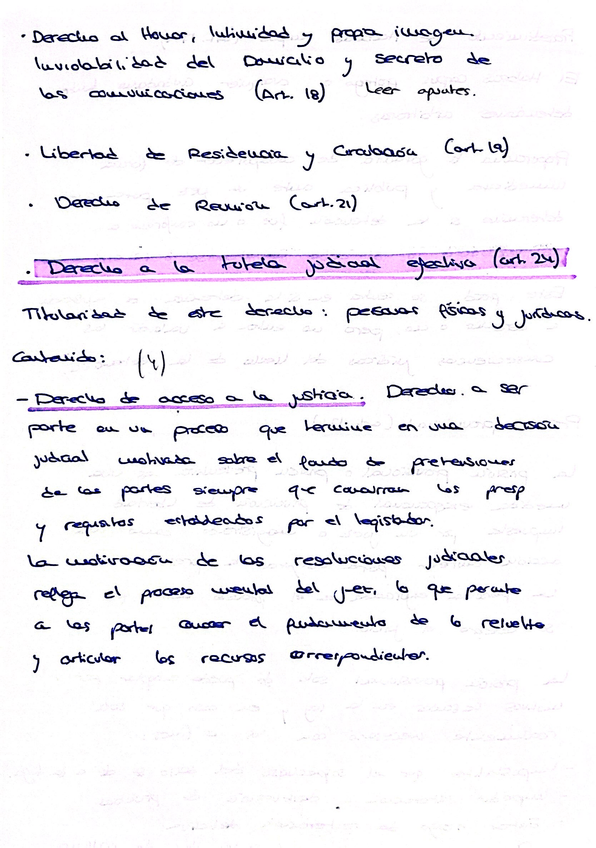 · Derecho al Honor, Intimidad y propia imagen.
Inviolabilidad del Domicilio y secreto de
las comunicaciones (Art. 18) Leer apuntes.
· Libertad de Residencia y Circulación (art. 19)
· Derecho de Reunión (art. 21)
· Derecho a la tutela judicial efectiva (art. 24)
Titularidad de este derecho: personas físicas y jurídicas.
Contenido: (4)
- Derecho de acceso a la justicia. Derecho. a ser
parte en un proceso que termine en una decisión
judicial motivada sobre el fondo de pretensiones
de las partes siempre que concurran los presp
y requisitos establecidos por el legislador.
La motivación de las resoluciones judiciales
refleja el proceso mental del juez, lo que permite
a las partes conocer el fundamento de lo resuelto
y articular los recursos correspondientes.